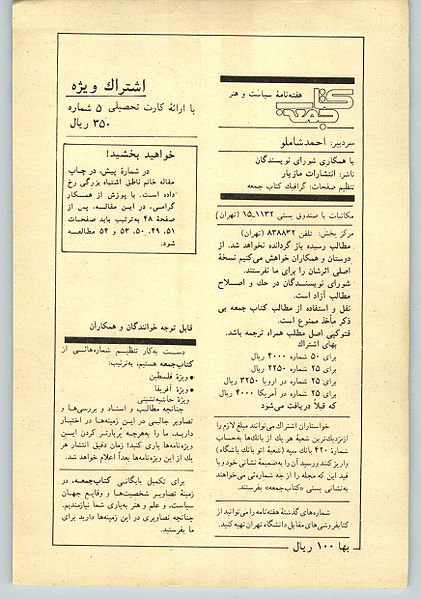 هفته‌نامهٔ سیاست و هنر
کتاب جمعه
سردبیر: احمد شاملو
با همکاری شورای نویسندگان
ناشر: انتشارات مازیار
تنظیم صفحات: گرافیک کتاب جمعه
مکاتبات با صندوق پستی ۱۱۳۲-۱۵ (تهران)
مرکز پخش: تلفن ۸۳۸۸۳۲ (تهران)
مطالب رسیده باز گردانده نخواهد شد. از
دوستان و همکاران خواهش می‌کنیم نسخهٔ
اصلی اثرشان را برای ما نفرستند.
شورای نویسندگان در حک و اصلاح
مطالب آزاد است.
نقل و استفاده از مطالب کتاب جمعه بی
ذکر مأخذ ممنوع است.
فتوکپی اصل مطلب همراه ترجمه باشد.
بهای اشتراک
برای ۵۰ شماره ۴۰۰۰ ریال
برای ۲۵ شماره ۲۲۵۰ ریال
برای ۲۵ شماره در اروپا ۳۲۵۰ ریال
برای ۲۵ شماره در آمریکا ۴۰۰۰ ریال
که قبلاً دریافت می‌شود
خواستاران اشتراک می‌توانند مبلغ لازم را
از نزدیک‌ترین شعبهٔ هر یک از بانک‌ها به‌حساب
شمارهٔ ۴۲۰ بانک سپه (شعبهٔ اتو بانک باشگاه)
واریز کنند و رسید آن را به‌ضمیمهٔ نشانی خود و با
قید این که مجله را از چه شماره‌ئی می‌خواهند
به‌نشانی پستی «کتاب‌جمعه» بفرستند.
شماره‌های گذشتهٔ هفته‌نامه را می‌توانید از
کتابفروشی‌های مقابل دانشگاه تهران تهیه کنید.
بها ۱۰۰ ریال
اشتراک ویژه
با ارائهٔ کارت تحصیلی ۵ شماره
۳۵۰ ریال
خواهید بخشید!
در شمارهٔ پیش، در چاپ
مقاله خانم ناطق اشتباه بزرگی رخ
داده است. با پوزش از همکار
گرامی، در این مقاله، پس از
صفحهٔ ۲۸ به‌ترتیب باید صفحات
۵۱، ۴۹، ۵۰، ۵۳ و ۵۴ مطالعه
شود.
قابل توجه خوانندگان و همکاران
دست به‌کار تنظیم شماره‌هائی از
کتاب‌جمعه هستیم، به‌ترتیب:
• ویژهٔ فلسطین
• ویژهٔ آفریقا
ویژهٔ حاشیه‌نشینی
چنانچه مطالب و اسناد و بررسی‌ها و
تصاویر جالبی در این زمینه‌ها در اختیار
دارید، ما را به‌هرچه پُربارتر کردن این
ویژه‌نامه‌ها یاری کنید! زمان دقیق انتشار هر
یک از این ویژه‌نامه‌ها بعداً اعلام خواهد شد.
برای تکمیل بایگانی کتاب‌جمعه، در
زمینهٔ تصاویر شخصیت‌ها و وقایع جهان
سیاست، و علم و هنر به‌یاری شما نیازمندیم.
چنانچه تصاویری در این زمینه‌ها دارید برای
ما بفرستید.